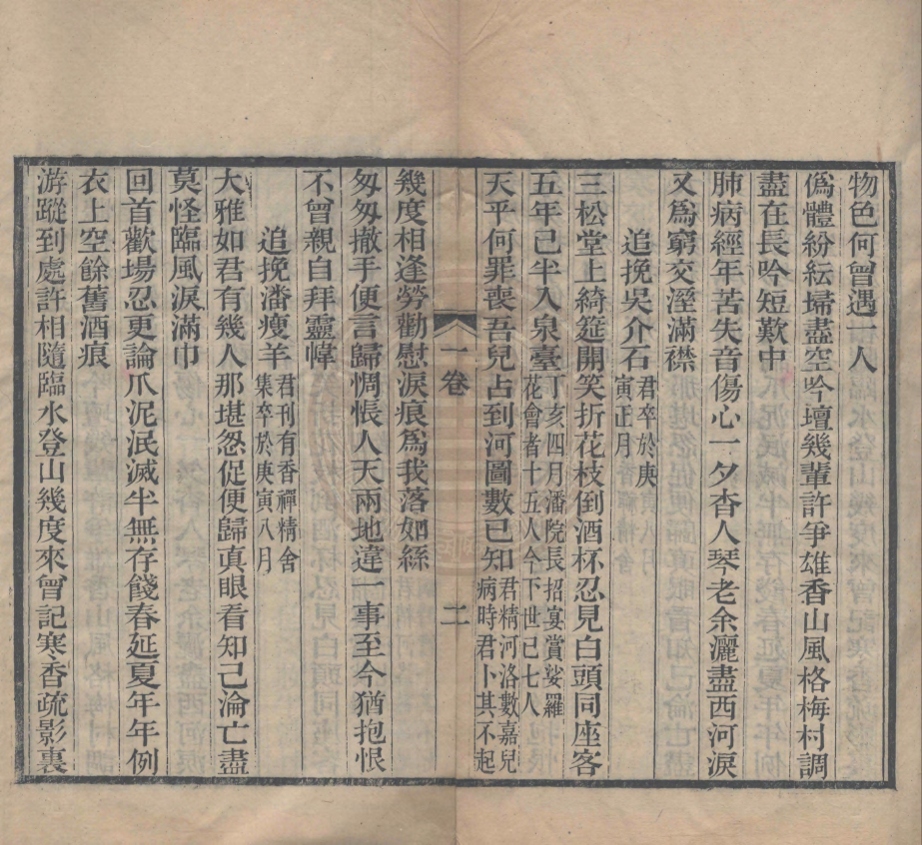 物色何曾遇一人
僞體紛紜埽盡空吟壇幾輩許爭雄香山風格梅村調
盡在長吟短歎中
肺病經年苦失音傷心一夕杳人琴老余灑盡西河淚
又爲窮交溼滿襟
追挽吳介石君卒於庚
寅正月
三松堂上綺筵開笑折花枝倒酒杯忍見白頭同座客
五年己半入泉臺丁亥四月潘院長招宴賞娑羅
花會者十五人今下世已七人
天乎何罪喪吾兒占到河圖數已知君精河洛數嘉兒
病時君卜其不起
一卷
二
幾度相逢勞勸慰淚痕爲我落如絲
匆匆撤手便言歸惆悵人天兩地違一事至今猶抱恨
不曾親自拜靈幃
追挽潘瘦羊君刊有香禪精舍
集卒於庚寅八月
大雅如君有幾人那堪怱促便歸眞眼看知己淪亡盡
莫怪臨風淚滿巾
回首歡場忍更論爪泥泯滅半無存餞春延夏年年例
衣上空餘舊酒痕
游蹤到處許相隨臨水登山幾度來曾記寒香疏影裏